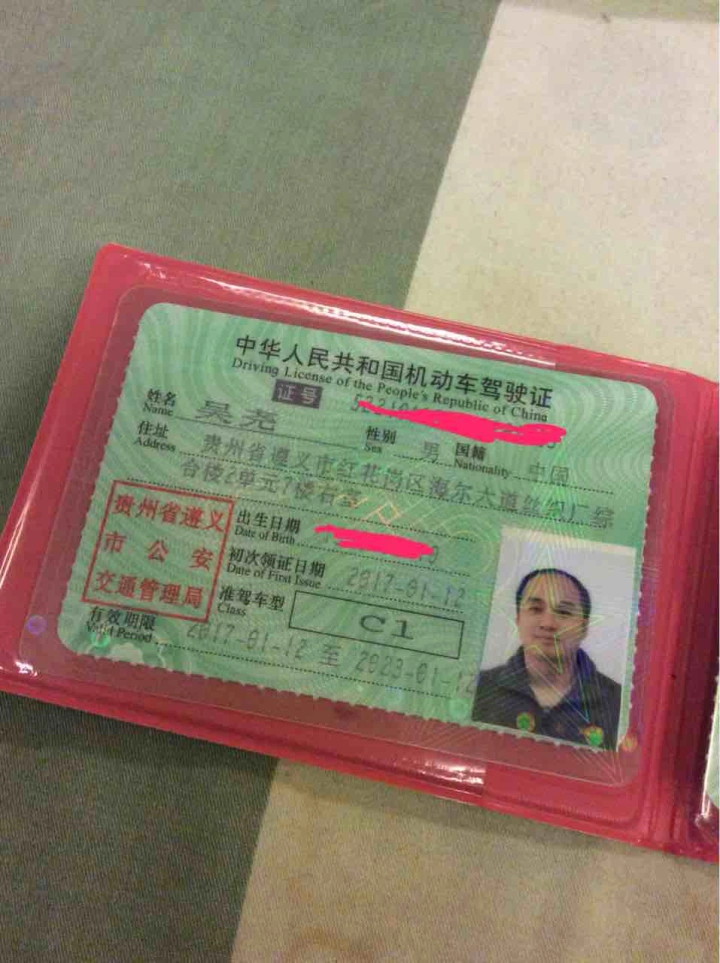 中华人民共和国机动车驾驶证
Driving License of the People's Republic of China
证号
姓名 吴尧 性别 男 国籍 中国
Name Sex Nationality
住址 贵州省遵义市红花岗区海尔大道丝织厂综
Address 合楼2单元7楼右室
出生日期
Date of Birth
初次领证日期 2017-01-12
Date of First Issue
准驾车型 C1
Class
有效期限 2017-01-12 至 2023-01-12
Valid Period
贵州省遵义
市公安
交通管理局